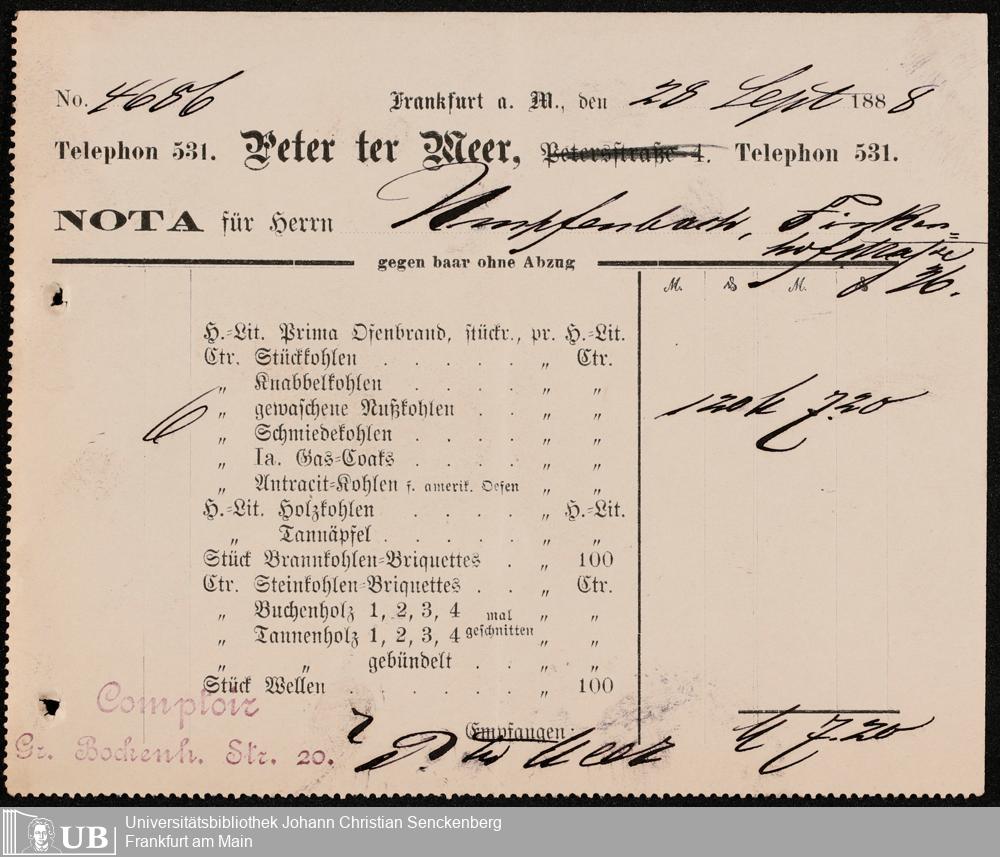 No. 4686 Frankfurt a. M., den 28 Sept 1888
Telephon 531. Peter ter Meer, Petersstraße 4. Telephon 531.
NOTA für Herrn Umpfenbach, Finken=
hofstraße
36.
gegen baar ohne Abzug
M. ₰ M. ₰
H.=Lit. Prima Ofenbrand, stückr., pr. H.=Lit.
Ctr. Stückkohlen . . . . . „ Ctr.
„ Knabbelkohlen . . . . „ „
„ gewaschene Nußkohlen . . „ „ 120 7.20
6 „ Schmiedekohlen . . . . „ „
„ Ia. Gas=Coaks . . . . „ „
„ Antracit=Kohlen f. amerik. Oefen „ „
H.=Lit. Holzkohlen . . . . „ H.=Lit.
„ Tannäpfel . . . . . „ „
Stück Braunkohlen=Briquettes . „ 100
Ctr. Steinkohlen=Briquettes . . „ Ctr.
„ Buchenholz 1, 2, 3, 4 mal „ „
„ Tannenholz 1, 2, 3, 4 geschnitten „ „
„ „ gebündelt . . „ „
Stück Wellen . . . . . . „ 100
Comptoir
Gr. Bockenh. Str. 20.
Empfangen:
P. ter Meer
M 7.20
UB
Universitätsbibliothek Johann Christian Senckenberg
Frankfurt am Main